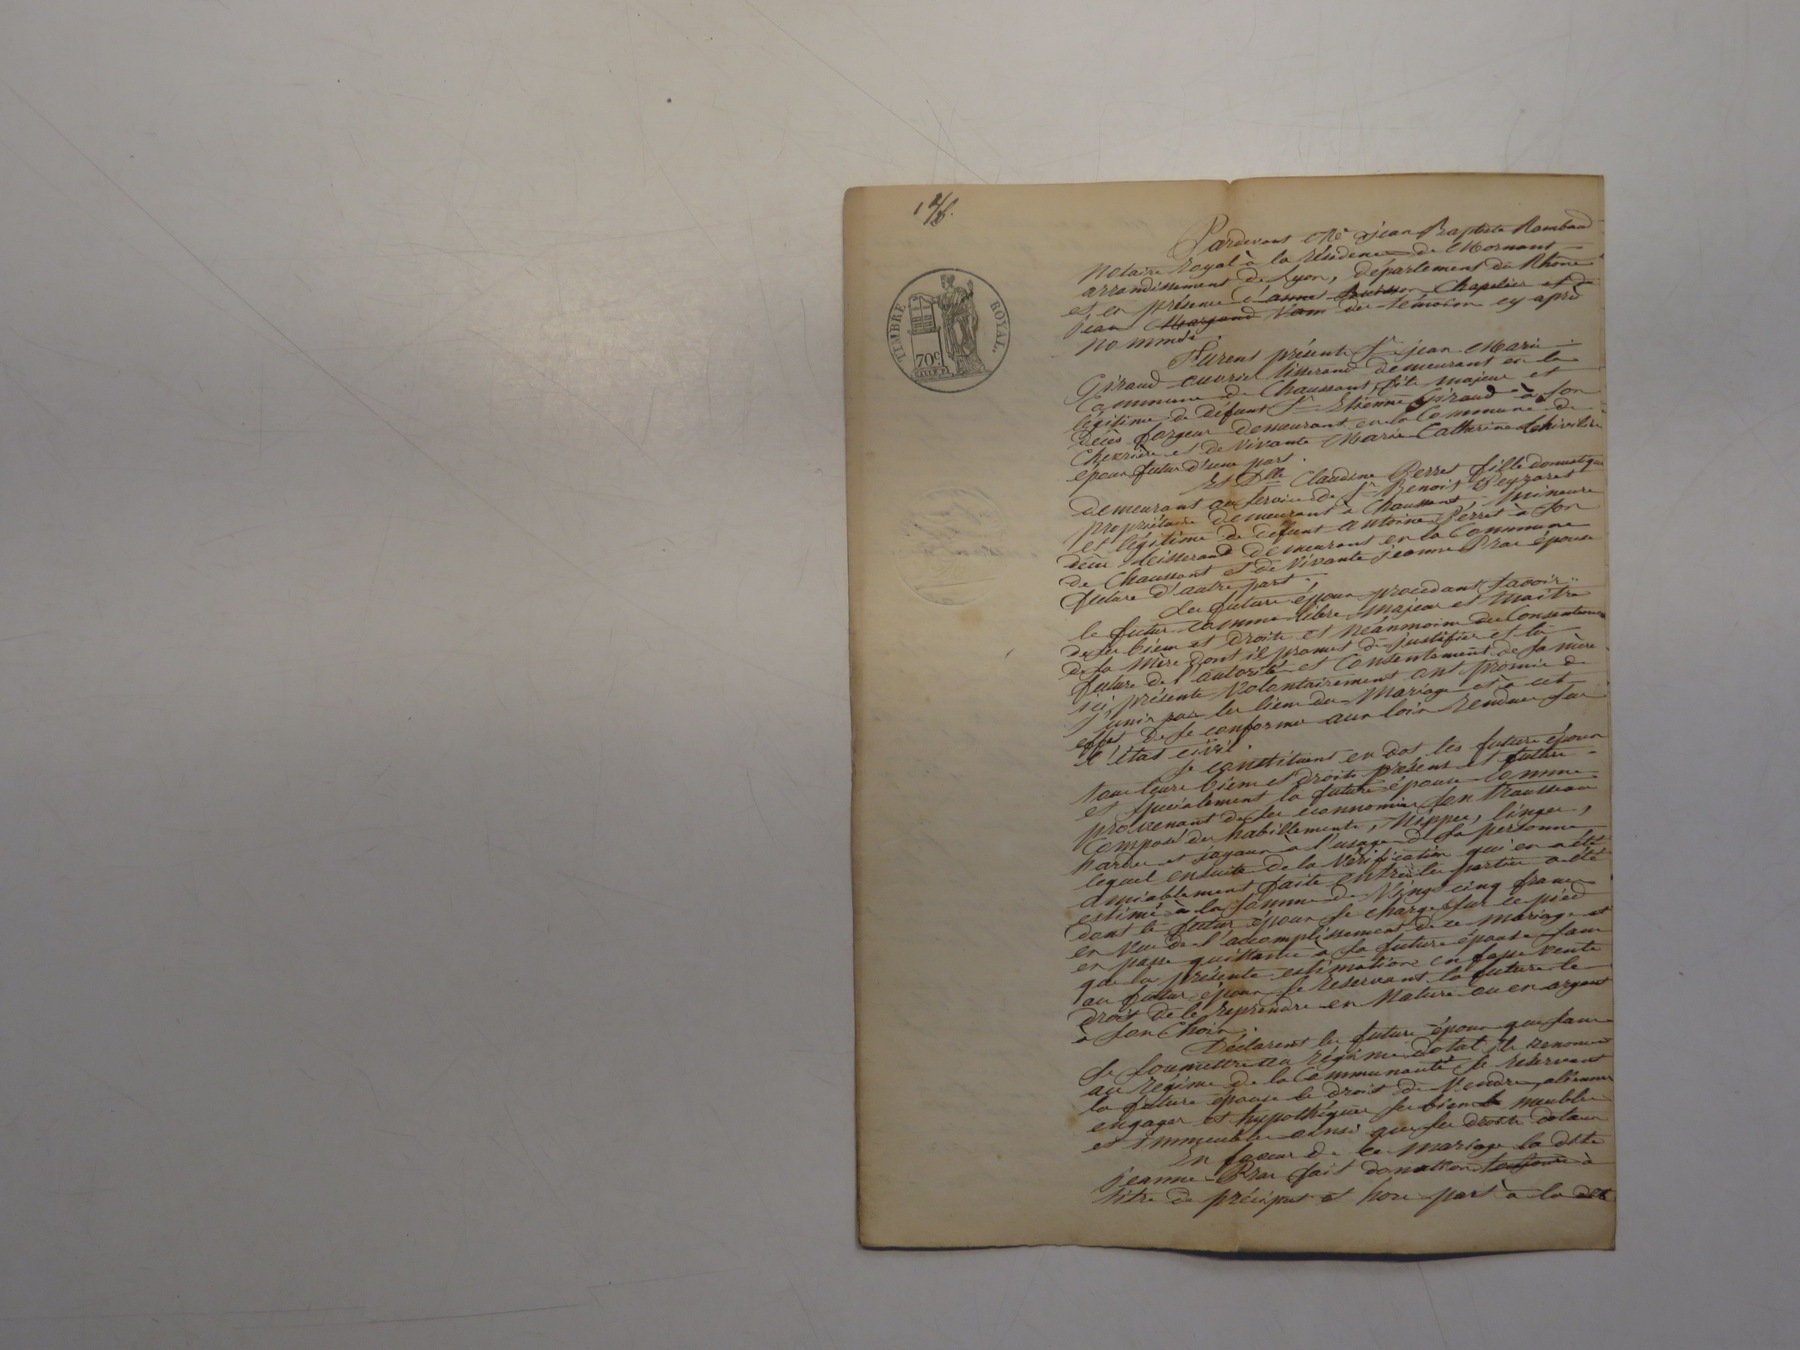 TIMBRE ROYAL
70c
Pardevant Me jean Baptiste Rambaud
Notaire royal à la résidence de Mornant
arrondissement de Lyon, département du Rhône
et en présence d' Chapelier et de
jean des témoins cy après
nommés
Furent présents Sr jean Marie
Giraud ouvrier tisserand demeurant en la
Commune de Chaussant, fils majeur et
légitime de défunt Sr Etienne Giraud à son
décès forgeur demeurant en la Commune de
et de vivante Marie Catherine
époux futur d'une part.
Et Dlle Claudine Perret fille domestique
demeurant au service de Sr Benoit
propriétaire demeurant à Chaussant, Mineure
et légitime de défunt antoine Perret à son
décès tisserand demeurant en la Commune
de Chaussant et de vivante jeanne Bras épouse
future d'autre part.
Les futurs époux procédant savoir
le futur comme libre majeur et maitre
de ses biens et droits et néanmoins du Consentement
de sa mère dont il promet de justifier et la
future de l'autorité et Consentement de sa mère
ici présente volontairement ont promis de
s'unir par les liens du Mariage et à cet
effet de se conformer aux lois rendues sur
l'état civil.
Se constituent en dot les futurs époux
tous leurs biens et droits présent et futurs
et spécialement la future épouse comme
provenant de ses économies son trousseau
Composé des habillements, Nippes, linges,
hardes et joyaux à l'usage de sa personne
lequel ensuite de la vérification qui en a été
amiablement faite entre les parties a été
estimé à la somme de Vingt cinq francs
dont le futur époux se charge sur ce pied
en vue de l'accomplissement de ce mariage et
en passe quittance à la future épouse sans
que la présente estimation en fasse vente
au futur époux se réservant la future le
droit de le reprendre en Nature ou en argent
à son Choix.
Déclarent les futurs époux que sans
se soumettre au régime dotal, ils renoncent
au régime de la Communauté se réservant
la future épouse le droit de Vendre, aliéner
engager et hypothéquer ses biens meubles
et immeubles ainsi que ses droits dotaux
En faveur de ce mariage la dite
jeanne Bras fait donation à
titre de préciput et hors part à la dte